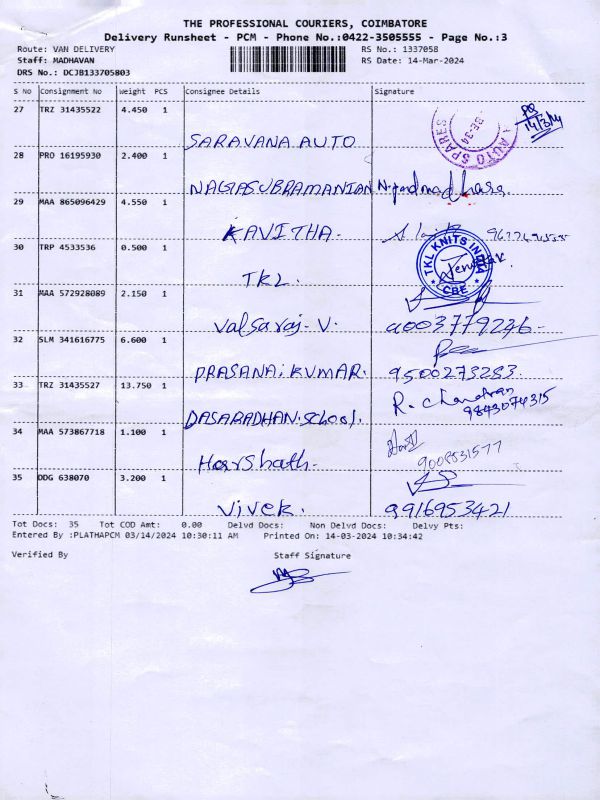 THE PROFESSIONAL COURIERS, COIMBATORE
Delivery Runsheet - PCM - Phone No.:0422-3505555 - Page No.:3
Route: VAN DELIVERY RS No.: 1337058
Staff: MADHAVAN RS Date: 14-Mar-2024
DRS No.: DCJB133705803
S No Consignment No Weight PCS Consignee Details Signature
27 TRZ 31435522 4.450 1
AUTO SPARES
14/3/24
SARAVANA AUTO
28 PRO 16195930 2.400 1
NAGASUBRAMANIAN
29 MAA 865096429 4.550 1
KAVITHA.
30 TRP 4533536 0.500 1
TKL KNITS INDIA
CBE
TKL.
31 MAA 572928089 2.150 1
Valsaraj. V. 9003779246
32 SLM 341616775 6.600 1
PRASANA. KUMAR. 9500273283
33 TRZ 31435527 13.750 1
R. Chandran
9843074315
DASARADHAN. School.
34 MAA 573867718 1.100 1
9008531577
Harshath.
35 DDG 638070 3.200 1
Vivek. 9916953421
Tot Docs: 35 Tot COD Amt: 0.00 Delvd Docs: Non Delvd Docs: Delvy Pts:
Entered By :PLATHAPCM 03/14/2024 10:30:11 AM Printed On: 14-03-2024 10:34:42
Verified By Staff Signature